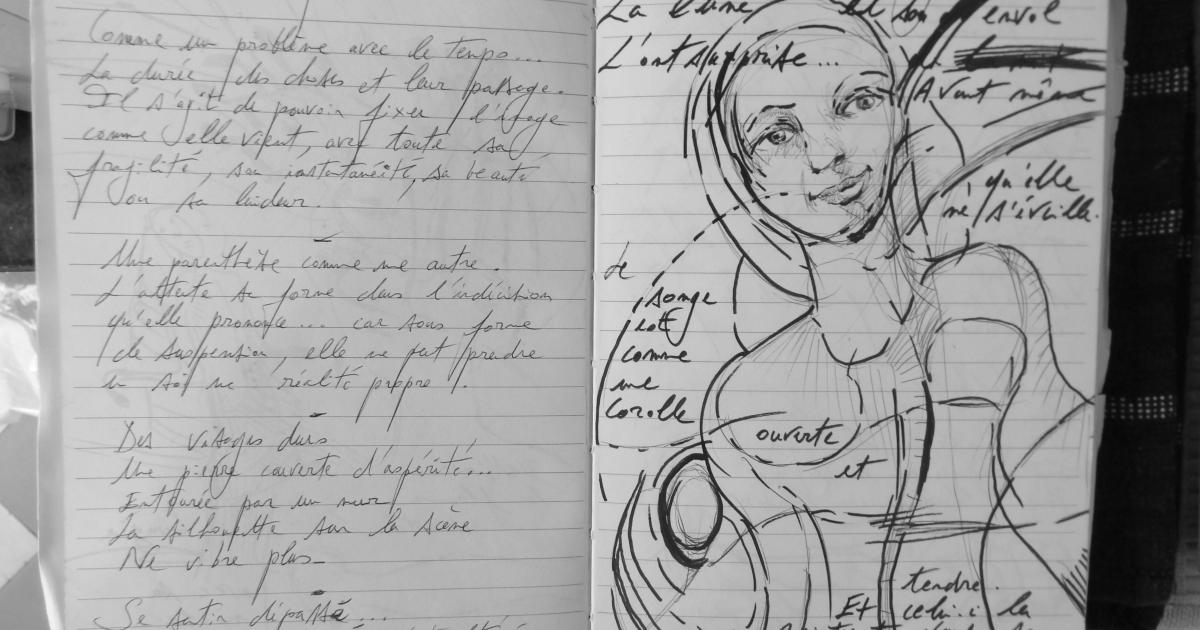 Comme un problème avec le tempo...
La durée des choses et leur passage.
Il s'agit de pouvoir fixer l'image
comme elle vient, avec toute sa
fragilité, son instantanéité, sa beauté
ou sa laideur.
Une parenthèse comme une autre.
L'attente se forme dans l'indécision
qu'elle prononce... car sous forme
de suspension, elle ne peut prendre
en soi une réalité propre.
Des visages durs
Une pierre couverte d'aspérité...
Entourée par un mur
La silhouette sur la scène
Ne vibre plus_
Se sentir dépassé...
La lune et son envol
L'ont surprise...
Avant même
qu'elle
ne s'éveille.
Le
songe
est
comme
une
Corolle
ouverte
et
tendre.
Et celui-ci la